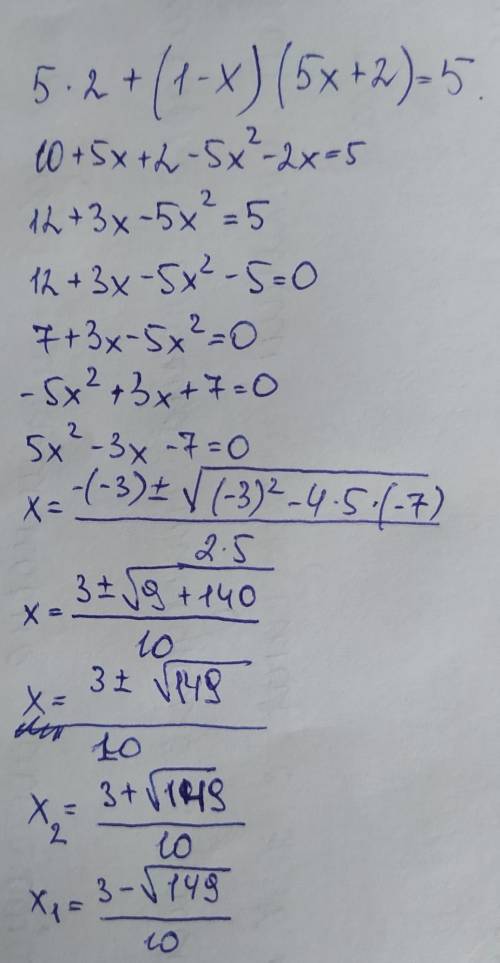 5·2+(1-x)(5x+2)=5.
10+5x+2-5x²-2x=5
12+3x-5x²=5
12+3x-5x²-5=0
7+3x-5x²=0
-5x²+3x+7=0
5x²-3x-7=0
x= -(-3)±√(-3)²-4·5·(-7)
2·5
x= 3±√9+140
10
x= 3±√149
10
x₂= 3+√149
10
x₁= 3-√149
10